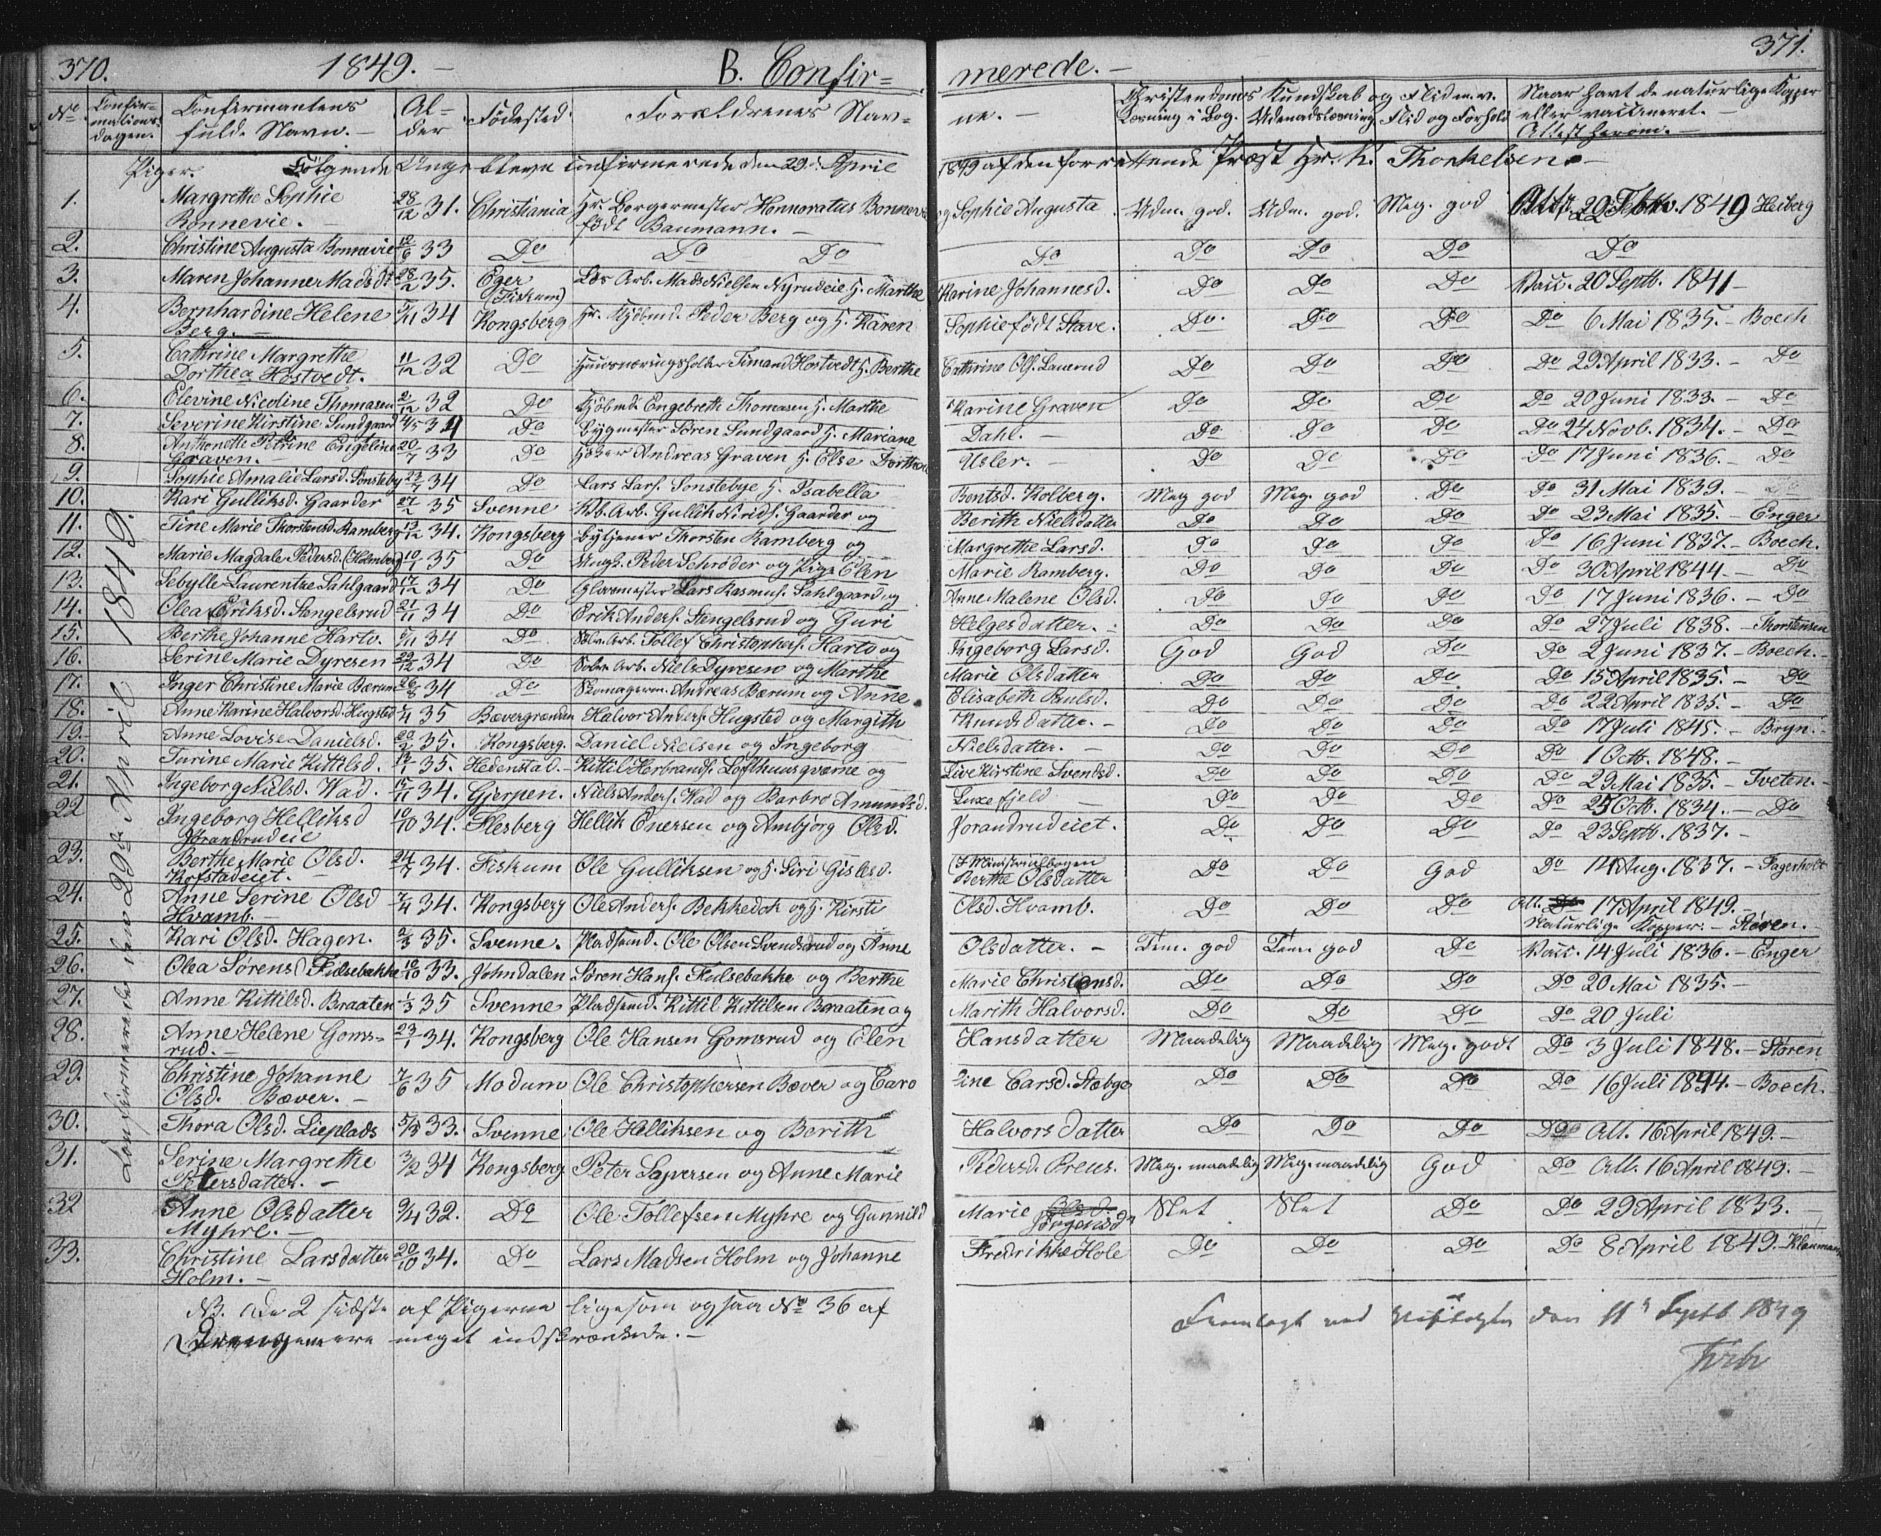 370. 1849.- B. Confir=
merede.- 371.
No Confirmationsdagen. Confirmantens fulde Navn.- Alder Födested. Forældrenes Navne.- Christendoms Kundskab og Flid m.v. Læsning i Bog. Udenadslæsning Flid og Forhold Naar havt de naturlige Kopper eller vaccineret. Attest herom.-
Piger. Følgende Unge bleve confirmerede den 29de April 1849 af den forrettende Præst Hr. K. Thorkelsen.-
Confirmerede den 29de April 1849.
1. Margrethe Sophie Bonnevie.- 28/12 31. Christiania Hr. Borgermester Honnoratus Bonnevie og Sophie Augusta födt Baumann.- Udm. god. Udm. god. Meg. god Att. 1849 Heiberg
2. Christine Augusta Bonnevie 10/6 33 Do Do Do Do Do Do Do Do
3. Maren Johanne Madsdr 28/2 35. Eger (Fiskum) Løs Arb. Mads Nielsen Nyrudeie H. Marthe Karine Johannesd. Do Do Do Vacc. 20 Septb. 1841-
4. Bernhardine Helene Berg.- 5/11 34 Kongsberg Hr. Kjöbmd. Peder Berg og H. Karen Sophie födt Stave. Do. Do Do Do 6 Mai 1835.- Boech
5. Cathrine Margrethe Dorthea Hostvedt. 11/12 32 Do Huusnæringsholder Simand Hostvedt H. Berthe Cathrine Ols. Do Do Do Do 29 April 1833. Do
6. Elevine Nicoline Thomasen 2/12 32 Do Kjöbmd. Engebreth Thomasen H. Marthe Karine Graven Do Do Do Do 20 Juni 1833.- Do
7. Severine Kirstine Sundgaard 34 Do Bygmester Sören Sundgaard H. Mariane Dahl.- Do Do Do Do 24 Novb. 1834.- Do
8. Anthonette Petrine Engeline Graven. 20/7 33 Do Höker Andreas Graven H. Else Dorthea Usler.- Do Do Do Do 17 Juni 1836.- Do
9. Sophie Amalie Larsd. Sonsteby 23/7 34 Do Lars Lars. Sonstebye H. Isabella Bentsd. Kolberg. Meg god Meg. god Do Do 31 Mai 1839.-
10. Kari Gulliksd. Gaarder 27/2 35 Svenne Gullik Gaarder og Berith Nielsdatter Do Do Do Do 23 Mai 1835. Enger
11. Tine Marie Thorstensd. Ramberg 19/12 34. Kongsberg Bytjener Thorsten Ramberg og Margrethe Larsd. Do Do Do Do 16 Juni 1837.- Boech.
12. Marie Magdale Pedersd. (Holmberg) 10/1 35 Do Ungk. Peder Schröder og Pige Elen Marie Ramberg. Do Do Do 30 April 1844.- Do
13. Sebylle Laurentze Sahlgaard 17/12 34 Do Glarmester Lars Rasmus. Sahlgaard og Anne Malene Olsd. Do Do Do Do 17 Juni 1836.- Do
14. Olea Eriksd. Stengelsrud 21/11 34 Do Erik Anders. Stengelsrud og Guri Helgesdatter.- Do Do Do Do 27 Juli 1838.- Thorstensen
15. Berthe Johanne Hartv. 34 Do Arb. Tollef Christophers. Hartv og Ingeborg Larsd. God God Do Do 2 Juni 1837.- Boech.-
16. Serine Marie Dyresen 29/12 34 Do Arb. Niels Dyresen og Marthe Marie Olsdatter Do Do Do Do 15 April 1835.- Do
17. Inger Christine Marie Bærum 26/8 34 Do Skomagerm. Andreas Bærum og Anne Elisabeth Paulsd. Do Do Do Do 22 April 1835.- Do
18. Anne Karine Halvorsd. Hugsted 5/4 35 Bævergrænden Halvor Anders. Hugsted og Margith Knudsdatter.- Do Do Do Do 17 Juli 1845.- Bryn.
19. Anne Lovise Danielsd. 20/2 35. Kongsberg. Daniel Nielsen og Ingeborg Nielsdatter.- Do Do Do Do 1 Octb. 1848.-
20. Turine Marie Kittilsd. 35. Hedenstad.- Kittil Herbrands. Lofthuusqværne og Live Kirstine Svendsd. Do Do Do Do 29 Mai 1835.- Tveten.-
21. Ingeborg Nielsd. Wad. 15/11 34. Gjerpen. Niels Anders. Wad og Barbro Amundsd. Luxefjeld- Do Do Do Do 25 Octb. 1834.- Do
22 Ingeborg Helliksd Jorandrudeie 10/10 34. Flesberg Hellik Enersen og Ambjörg Olsd. Jorandrudeiet. Do Do Do Do 23 Septb. 1837.-
23. Berthe Marie Olsd. Kofstadeiet.- 24/7 34. Fiskum Ole Gulliksen og H. Siri Gislesd. (I Ministerialbogen Berthe Olsdatter Do Do God Do 14 Aug. 1837.- Fagerholt
24. Anne Serine Olsd Hvamb.- 7/4 34. Kongsberg Ole Anders. Bekkedok og H. Kirsti Olsd. Hvamb. Do Do Do Att. 17 April 1849.- Naturlige Kopper.- Stören.
25. Kari Olsd. Hagen. 2/3 35. Svenne. Pladsmd. Ole Olsen Svendsrud og Anne Olsdatter.- Tem. god Tem. god Do Vacc. 14 Juli 1836.- Enger
26. Olea Sörensd Fulsebakke 10/10 33. Johndalen Sören Hans. Fulsebakke og Berthe Marie Christensd. Do Do Do Do 20 Mai 1835.-
27. Anne Kittilsd. Braaten 1/3 35 Svenne Pladsmd. Kittil Kittilsen Braaten og Marith Halvorsd. Do Do Do Do 20 Juli
28. Anne Helene Gomsrud.- 23/1 34. Kongsberg Ole Hansen Gomsrud og Elen Hansdatter Maadelig Maadelig Meg. godt Do 3 Juli 1848.- Stören
29. Christine Johanne Olsd. Bæver.- 7/6 35 Modum Ole Christophersen Bæver og Caroline Larsd. Stebge Do Do Do Do 16 Juli 1844.- Boech.
30. Thora Olsd. Lieplads 5/3 33. Svenne. Ole Helliksen og Berith Halvorsdatter Do Do Do Do Att. 16 April 1849.-
31. Serine Margrethe Petersdatter.- 3/12 34 Kongsberg Peter Sapersen og Anne Marie Pedersd. Preus. Meg. maadelig Meg. maadelig God Do Att. 16 April 1849.-
32 Anne Olsdatter Myhre.- 9/4 32. Do Ole Tollefsen Myhre og Gunnild Marie Jörgensd. Slet Slet Do Do 29 April 1833.-
33. Christine Larsdatter Holm.- 20/10 34. Do Lars Madsen Holm og Johanne Fredrikke Hole Do Do Do Do 8 April 1849. Klaumann
NB. De 2 sidste af Pigerne ligesom ogsaa No 36 af
Drengene ere meget indskrænkede.-
Fremlagt ved Visitatsen den 11te Septb 1849